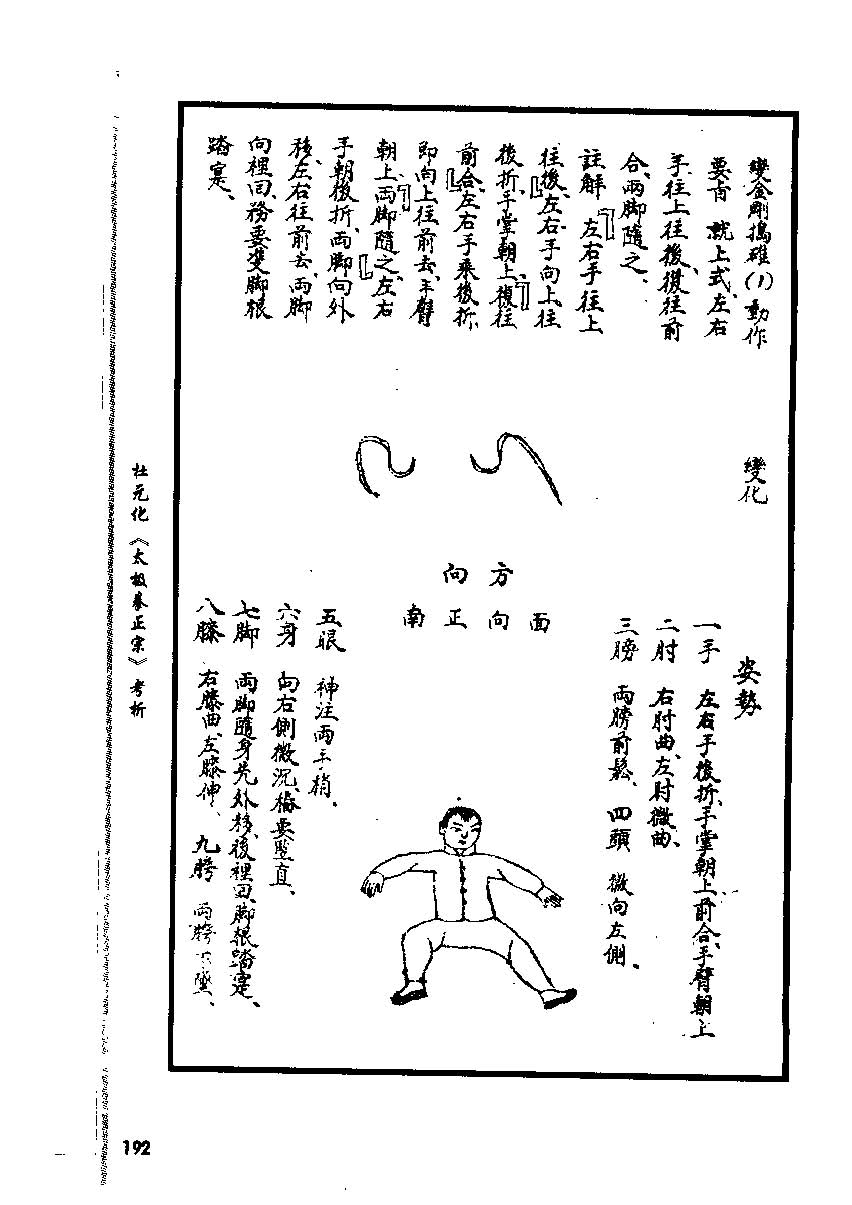 變金剛搗碓(1)動作
要言 就上式、左右
手、往上往後、復往前
合、兩脚隨之、
註解 左右手往上
往後、左右手向上往
後折、手掌朝上、復往
前合、左右手乘後折、
即向上往前去、手臂
朝上、兩脚隨之、左右
手朝後折、兩脚向外
移、左右往前去、兩脚
向裡回、務要雙脚根
踏寔、
變化
方向
面向正南
姿勢
一手 左右手後折、手掌朝上前合、手臂朝上
二肘 右肘曲、左肘微曲、
三膀 兩膀前鬆、四頭 微向左側、
五眼 神注兩手梢、
六身 向右側微沉、樁要豎直、
七脚 兩脚隨身先外移、後裡回、脚根踏寔、
八膝 右膝曲、左膝伸、九胯 兩胯下墜、
杜元化《太极拳正宗》考析
192